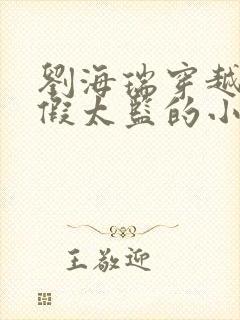 劉海瑞穿越
假太監的小
王敬迎